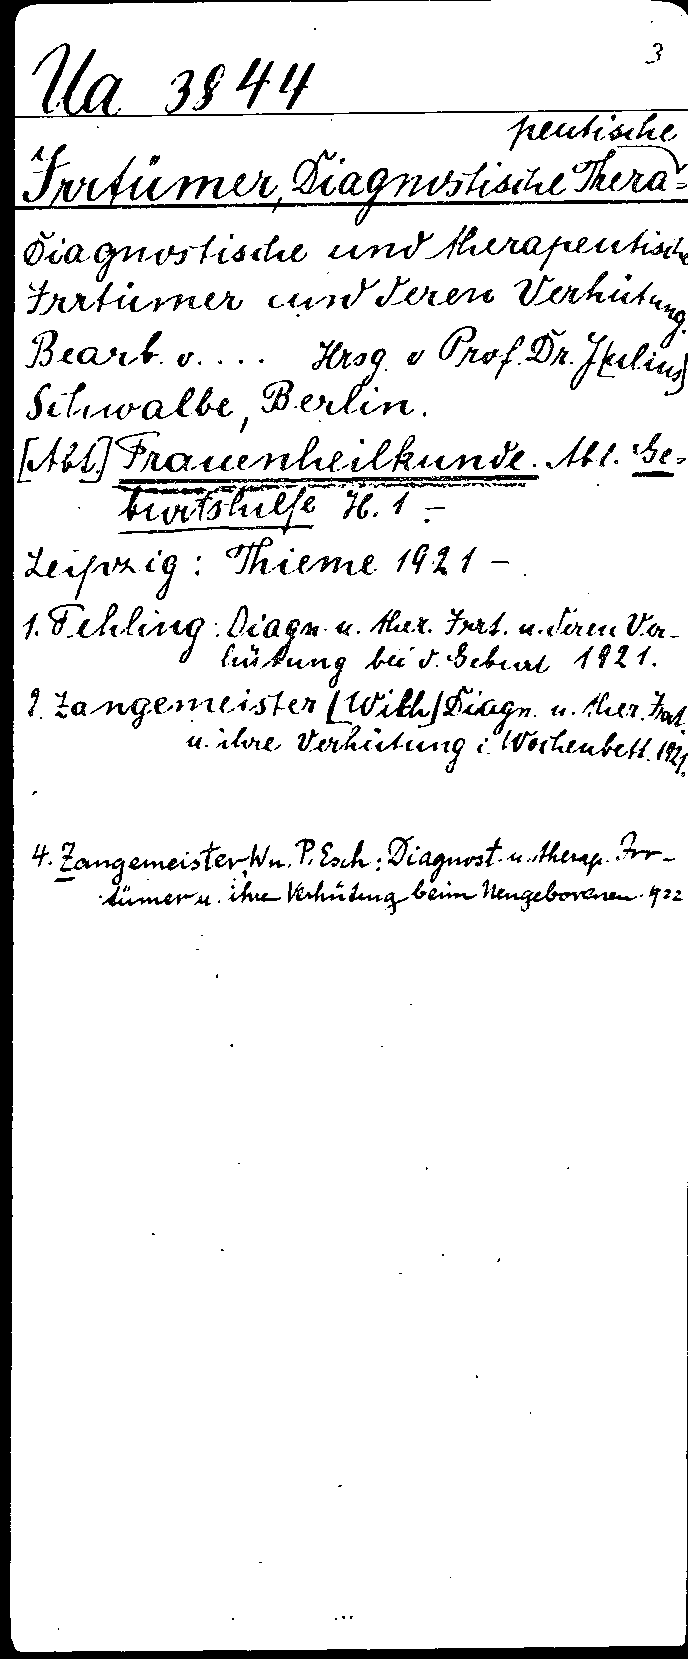 3
Ua 3844
peutische
Irrtümer, Diagnostische Thera-
Diagnostische und therapeutische
Irrtümer und deren Verhütung.
Bearb. v. . . . Hrsg. v Prof. Dr. J[ulius]
Schwalbe, Berlin.
[Abt.] Frauenheilkunde. Abt. Ge-
burtshilfe H. 1 -
Leipzig: Thieme 1921 -
1. Fehling: Diagn. u. ther. Irrt. u. deren Ver-
hütung bei d. Geburt 1921.
2. Zangemeister [Wilh] Diagn. u. ther. Irrt.
u. ihre Verhütung i. Wochenbett. 1921.
4. Zangemeister, W u. P. Esch: Diagnost. u. therap. Irr-
tümer u. ihre Verhütung beim Neugeborenen. 922